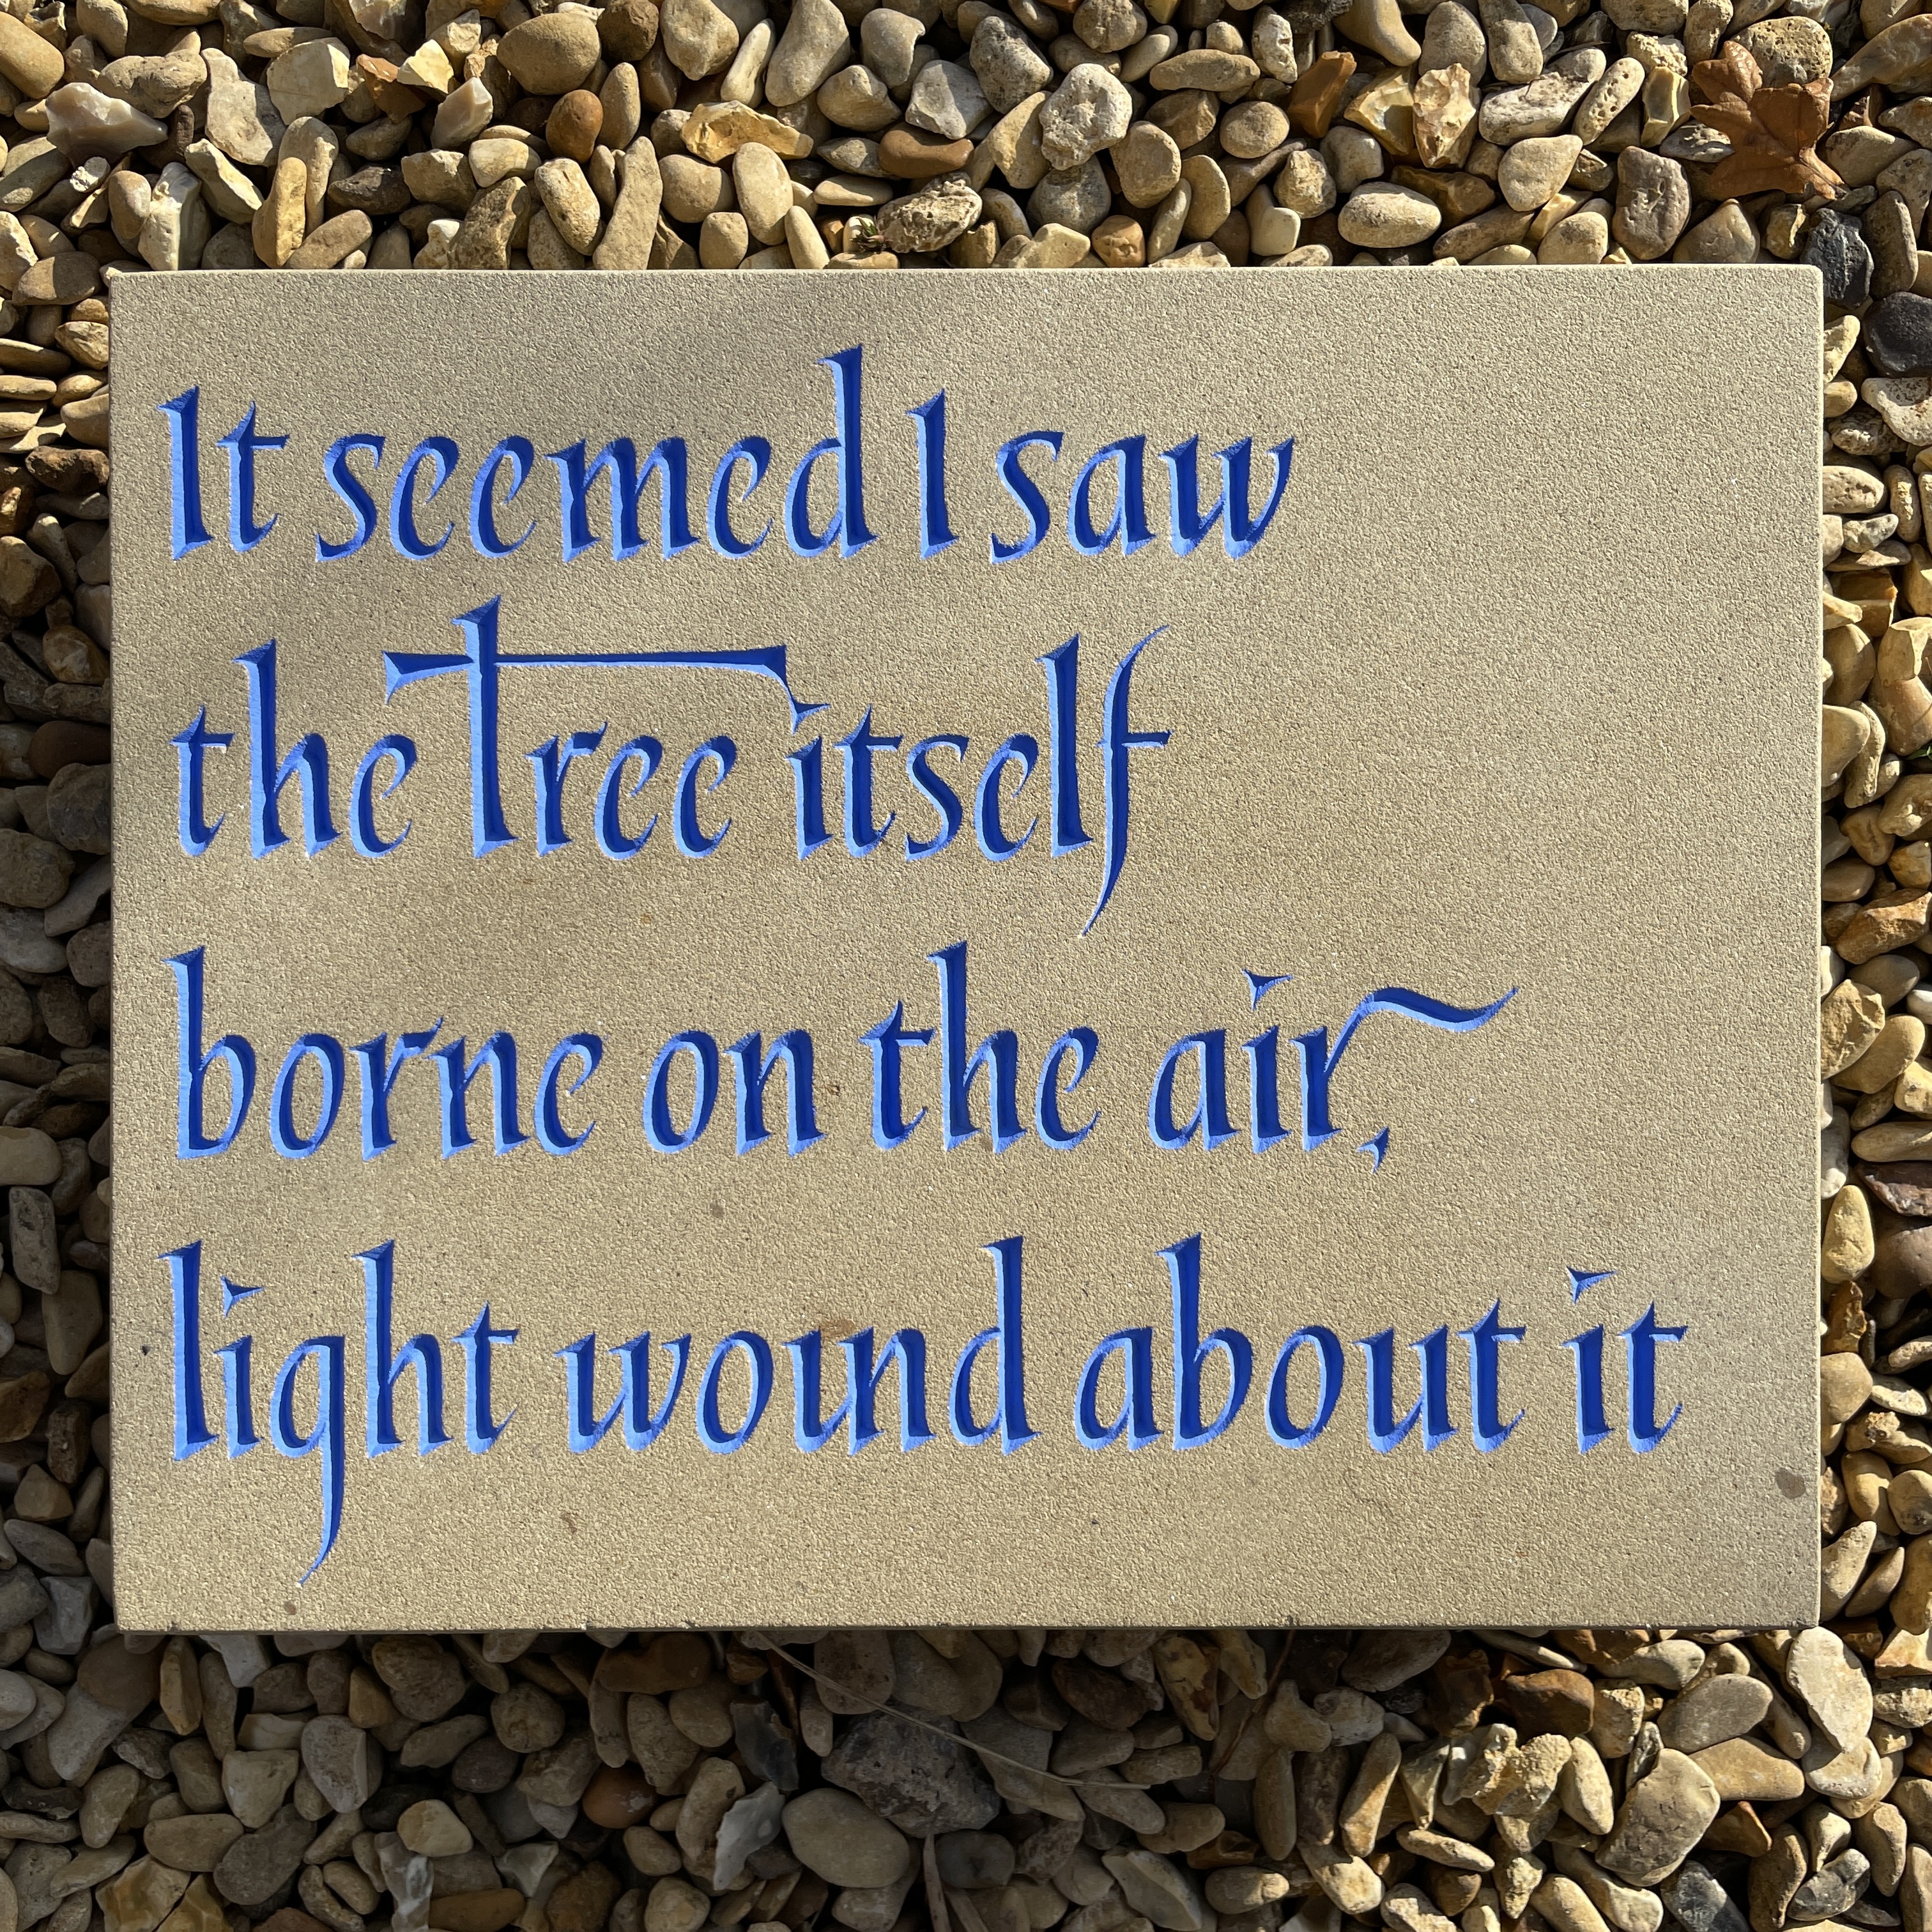 It seemed I saw
the Tree itself
borne on the air,
light wound about it